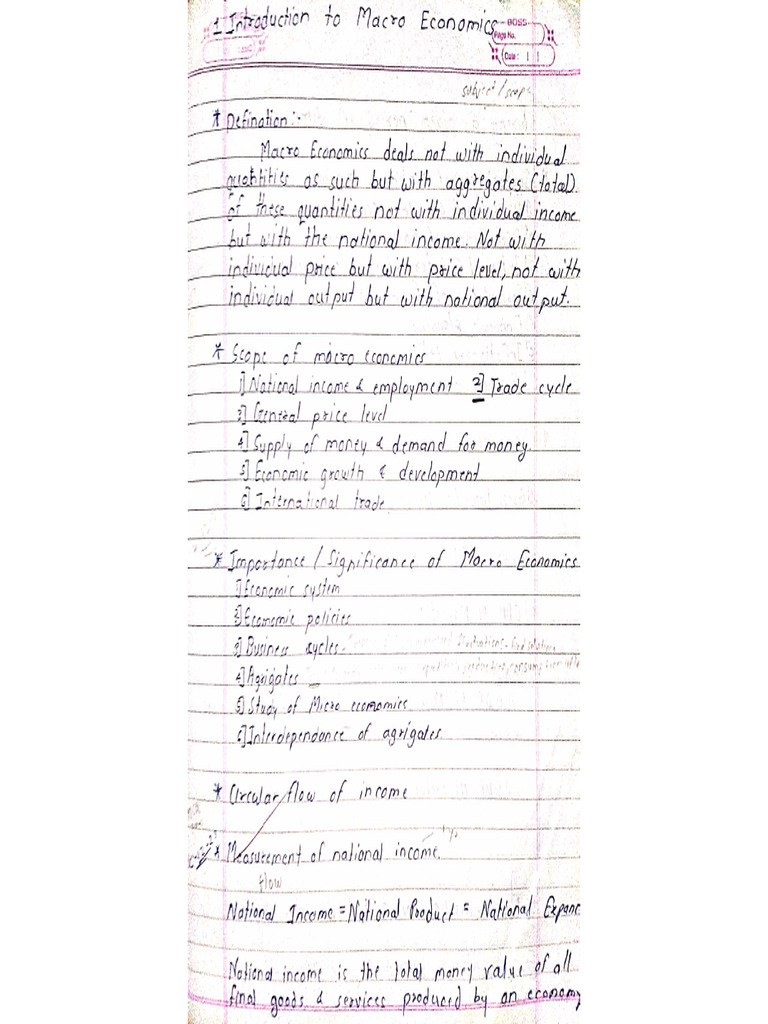 1 Introduction to Macro Economics
BOSS
Page No.
Date: / /
subject / scope
* Defination:-
Macro Economics deals not with individual
quantities as such but with aggregates (total)
of these quantities not with individual income
but with the national income. Not with
individual price but with price level, not with
individual output but with national output.
* Scope of macro economics
1] National income & employment 2] Trade cycle
3] General price level
4] Supply of money & demand for money
5] Economic growth & development
6] International trade
* Importance / Significance of Macro Economics
1] Economic system
2] Economic policies
3] Business cycles
4] Agrigates
5] Study of Micro economics
6] Interdependance of agrigates
* Circular flow of income
* Measurement of national income.
flow
National Income = National Product = National Expan
National income is the total money value of all
final goods & services produced by an economy